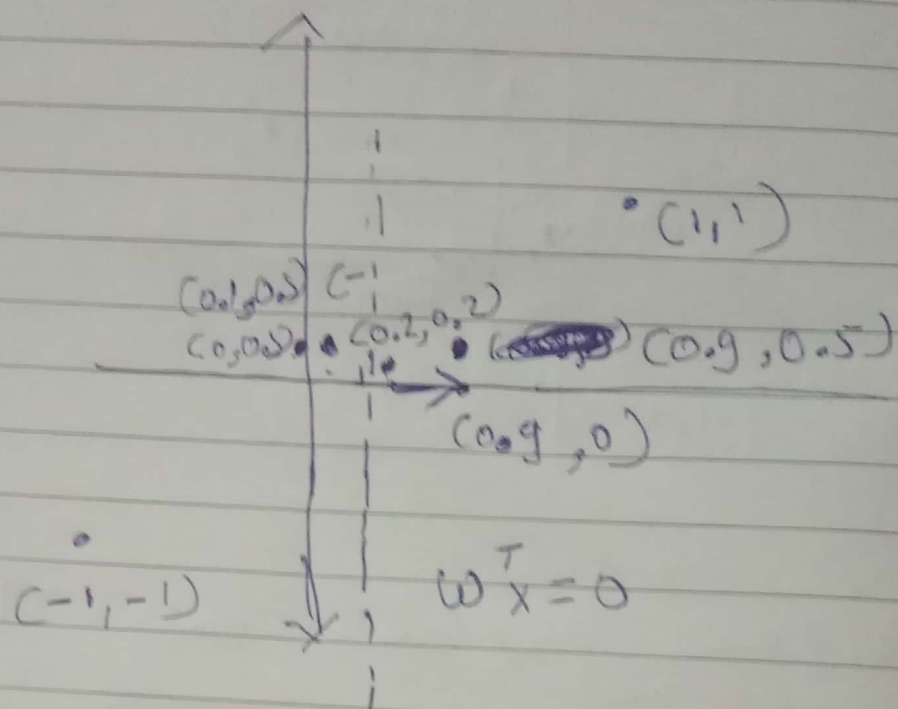 (1,1)
(0.1,0.5) (-1
(0,0.5) (0.2,0.2) (0.9,0.5)
(0.9,0)
(-1,-1) wᵀx=0